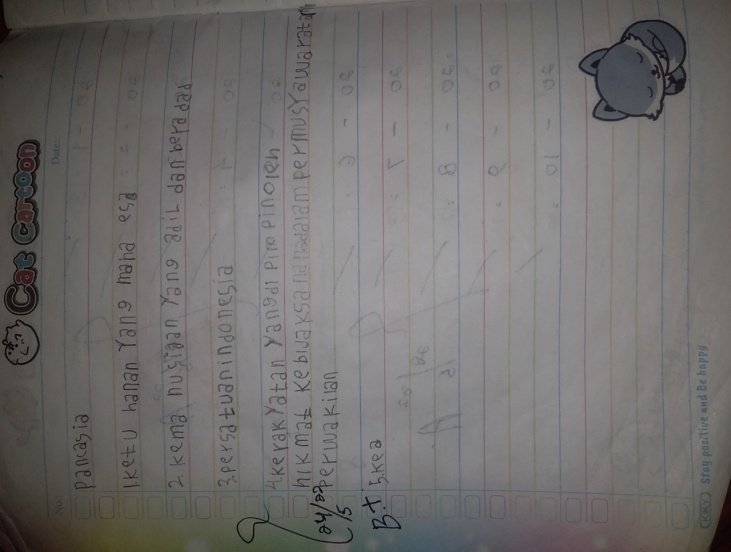 Cat Cartoon
No:
Date:
Pancasia
1 ketu hanan Yang maha esa
2. kema nusiaan Yang adil dan bera dab
3. persatuan indonesia
4. kerakYatan Yang di pim pin oleh
hikmat kebijaksanaan dalam permusYawaratan
perwakilan
5. kea
24/22
5
B+
Stay positive and Be happy